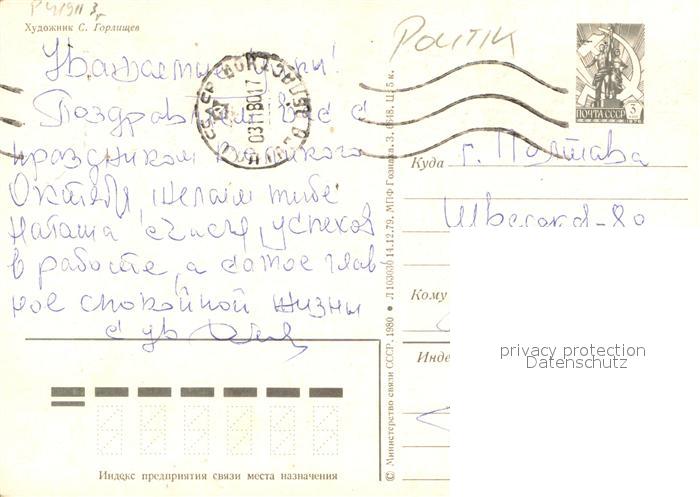 Художник С. Горлищев
Politik
Уважаемые !
Поздравляем Вас с
праздником Великого
Октября, желаем тебе
Наташа счастья, успехов
в работе, а самое глав
ное спокойной жизни
с ув
ПОЧТА СССР 3
1976
Куда г. Полтава
Кому
Инде
© Министерство связи СССР, 1980 • Л 103030 14.12.79. МПФ Гознака. З. 6848. Ц. 5 к.
Индекс предприятия связи места назначения
privacy protection
Datenschutz